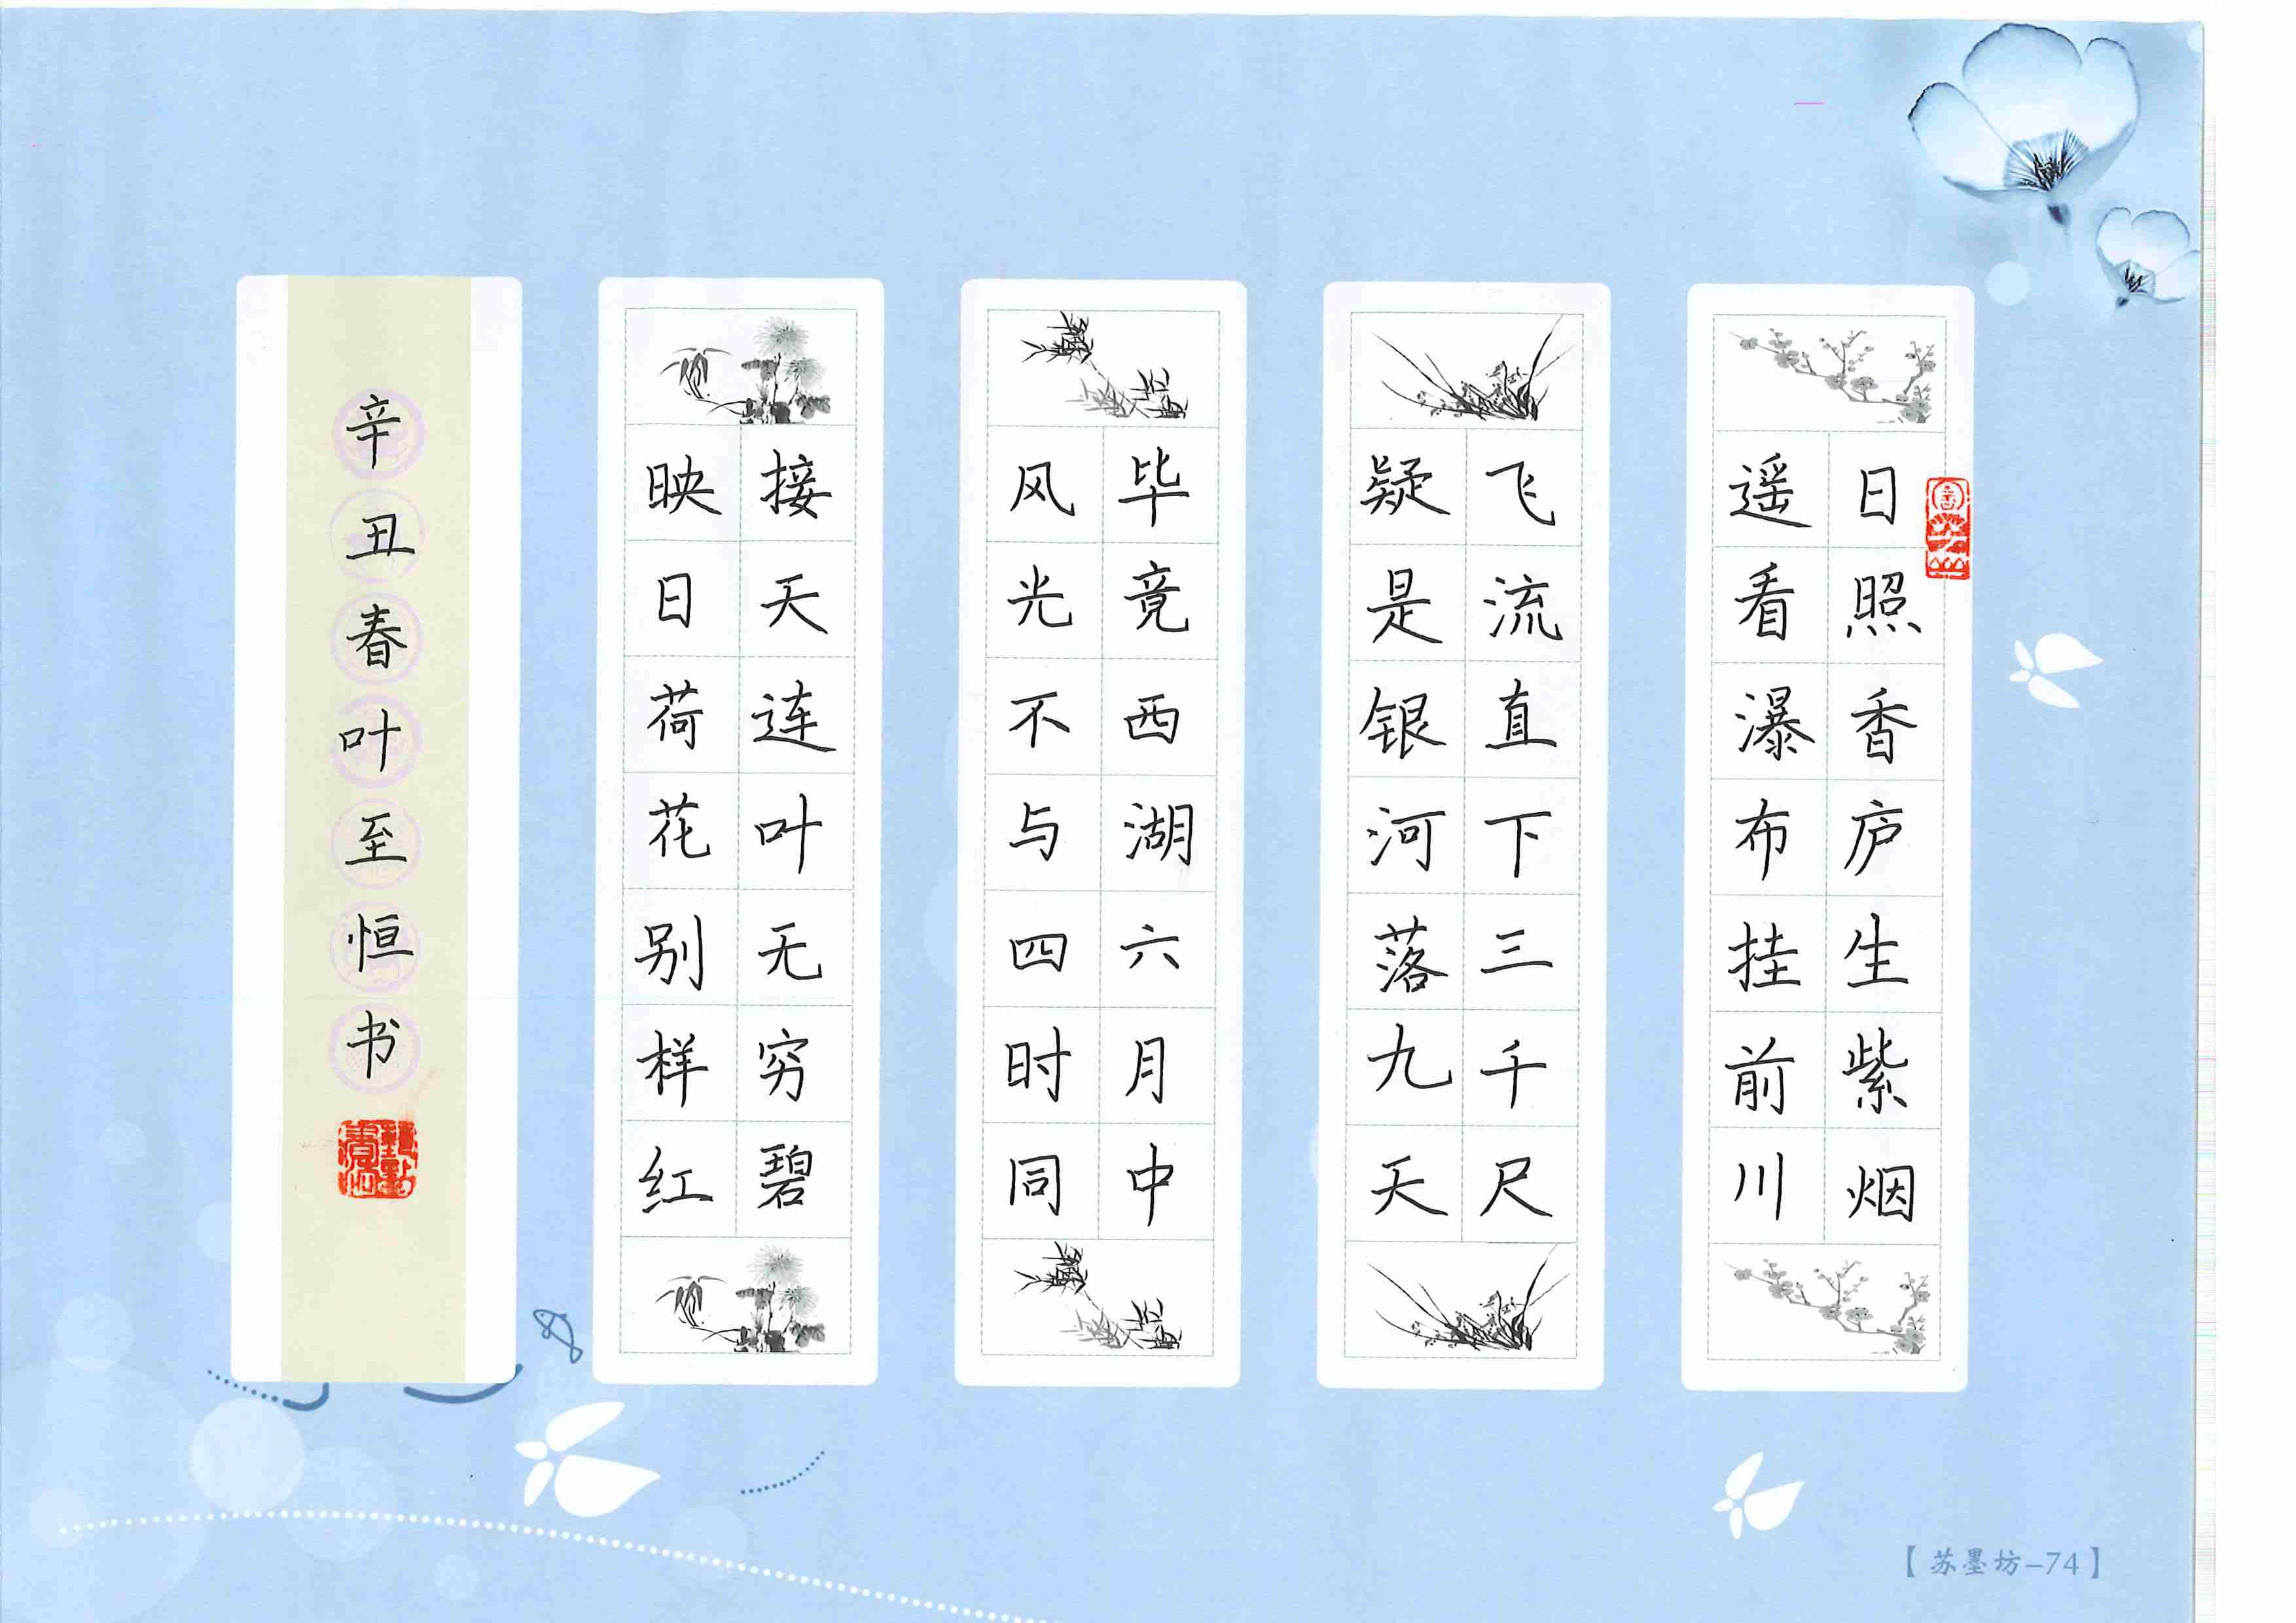 日照香庐生紫烟
遥看瀑布挂前川
飞流直下三千尺
疑是银河落九天
毕竟西湖六月中
风光不与四时同
接天连叶无穷碧
映日荷花别样红
辛丑春叶至恒书
【苏墨坊-74】